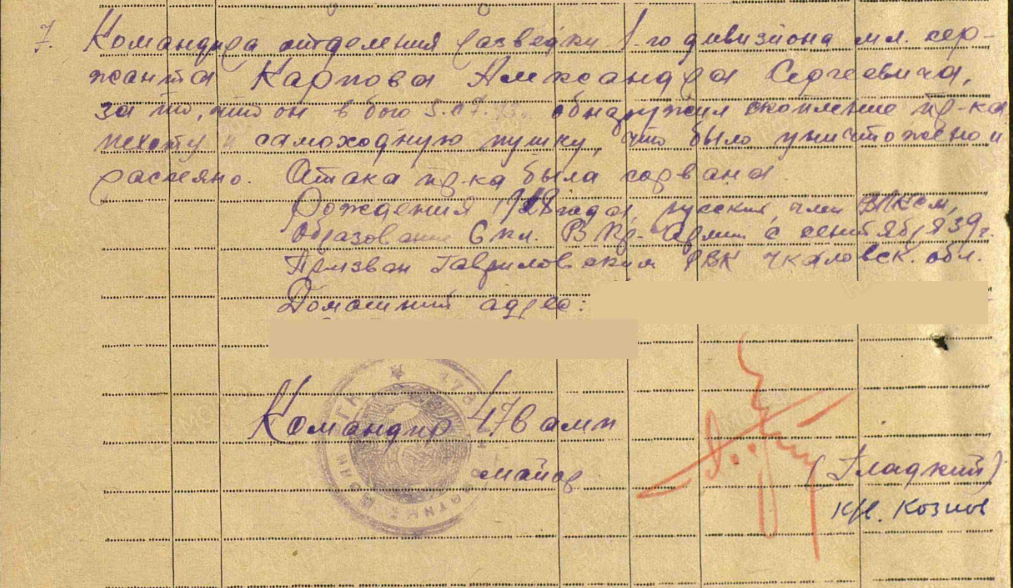 7. Командира отделения разведки 1-го дивизиона мл. сер-
жанта Карпова Александра Сергеевича,
за то, что он в бою 5.07. обнаружил скопление пр-ка
пехоту и самоходную пушку, что было уничтожено и
рассеяно. Атака пр-ка была сорвана.
Рождения 1918 года, русский, член ВЛКСМ,
образование 6 кл. В Кр. Армии с сентября 39 г.
Призван Гавриловским РВК Чкаловск. обл.
Домашний адрес:
Командир 476 амп
майор
(Гладкий)